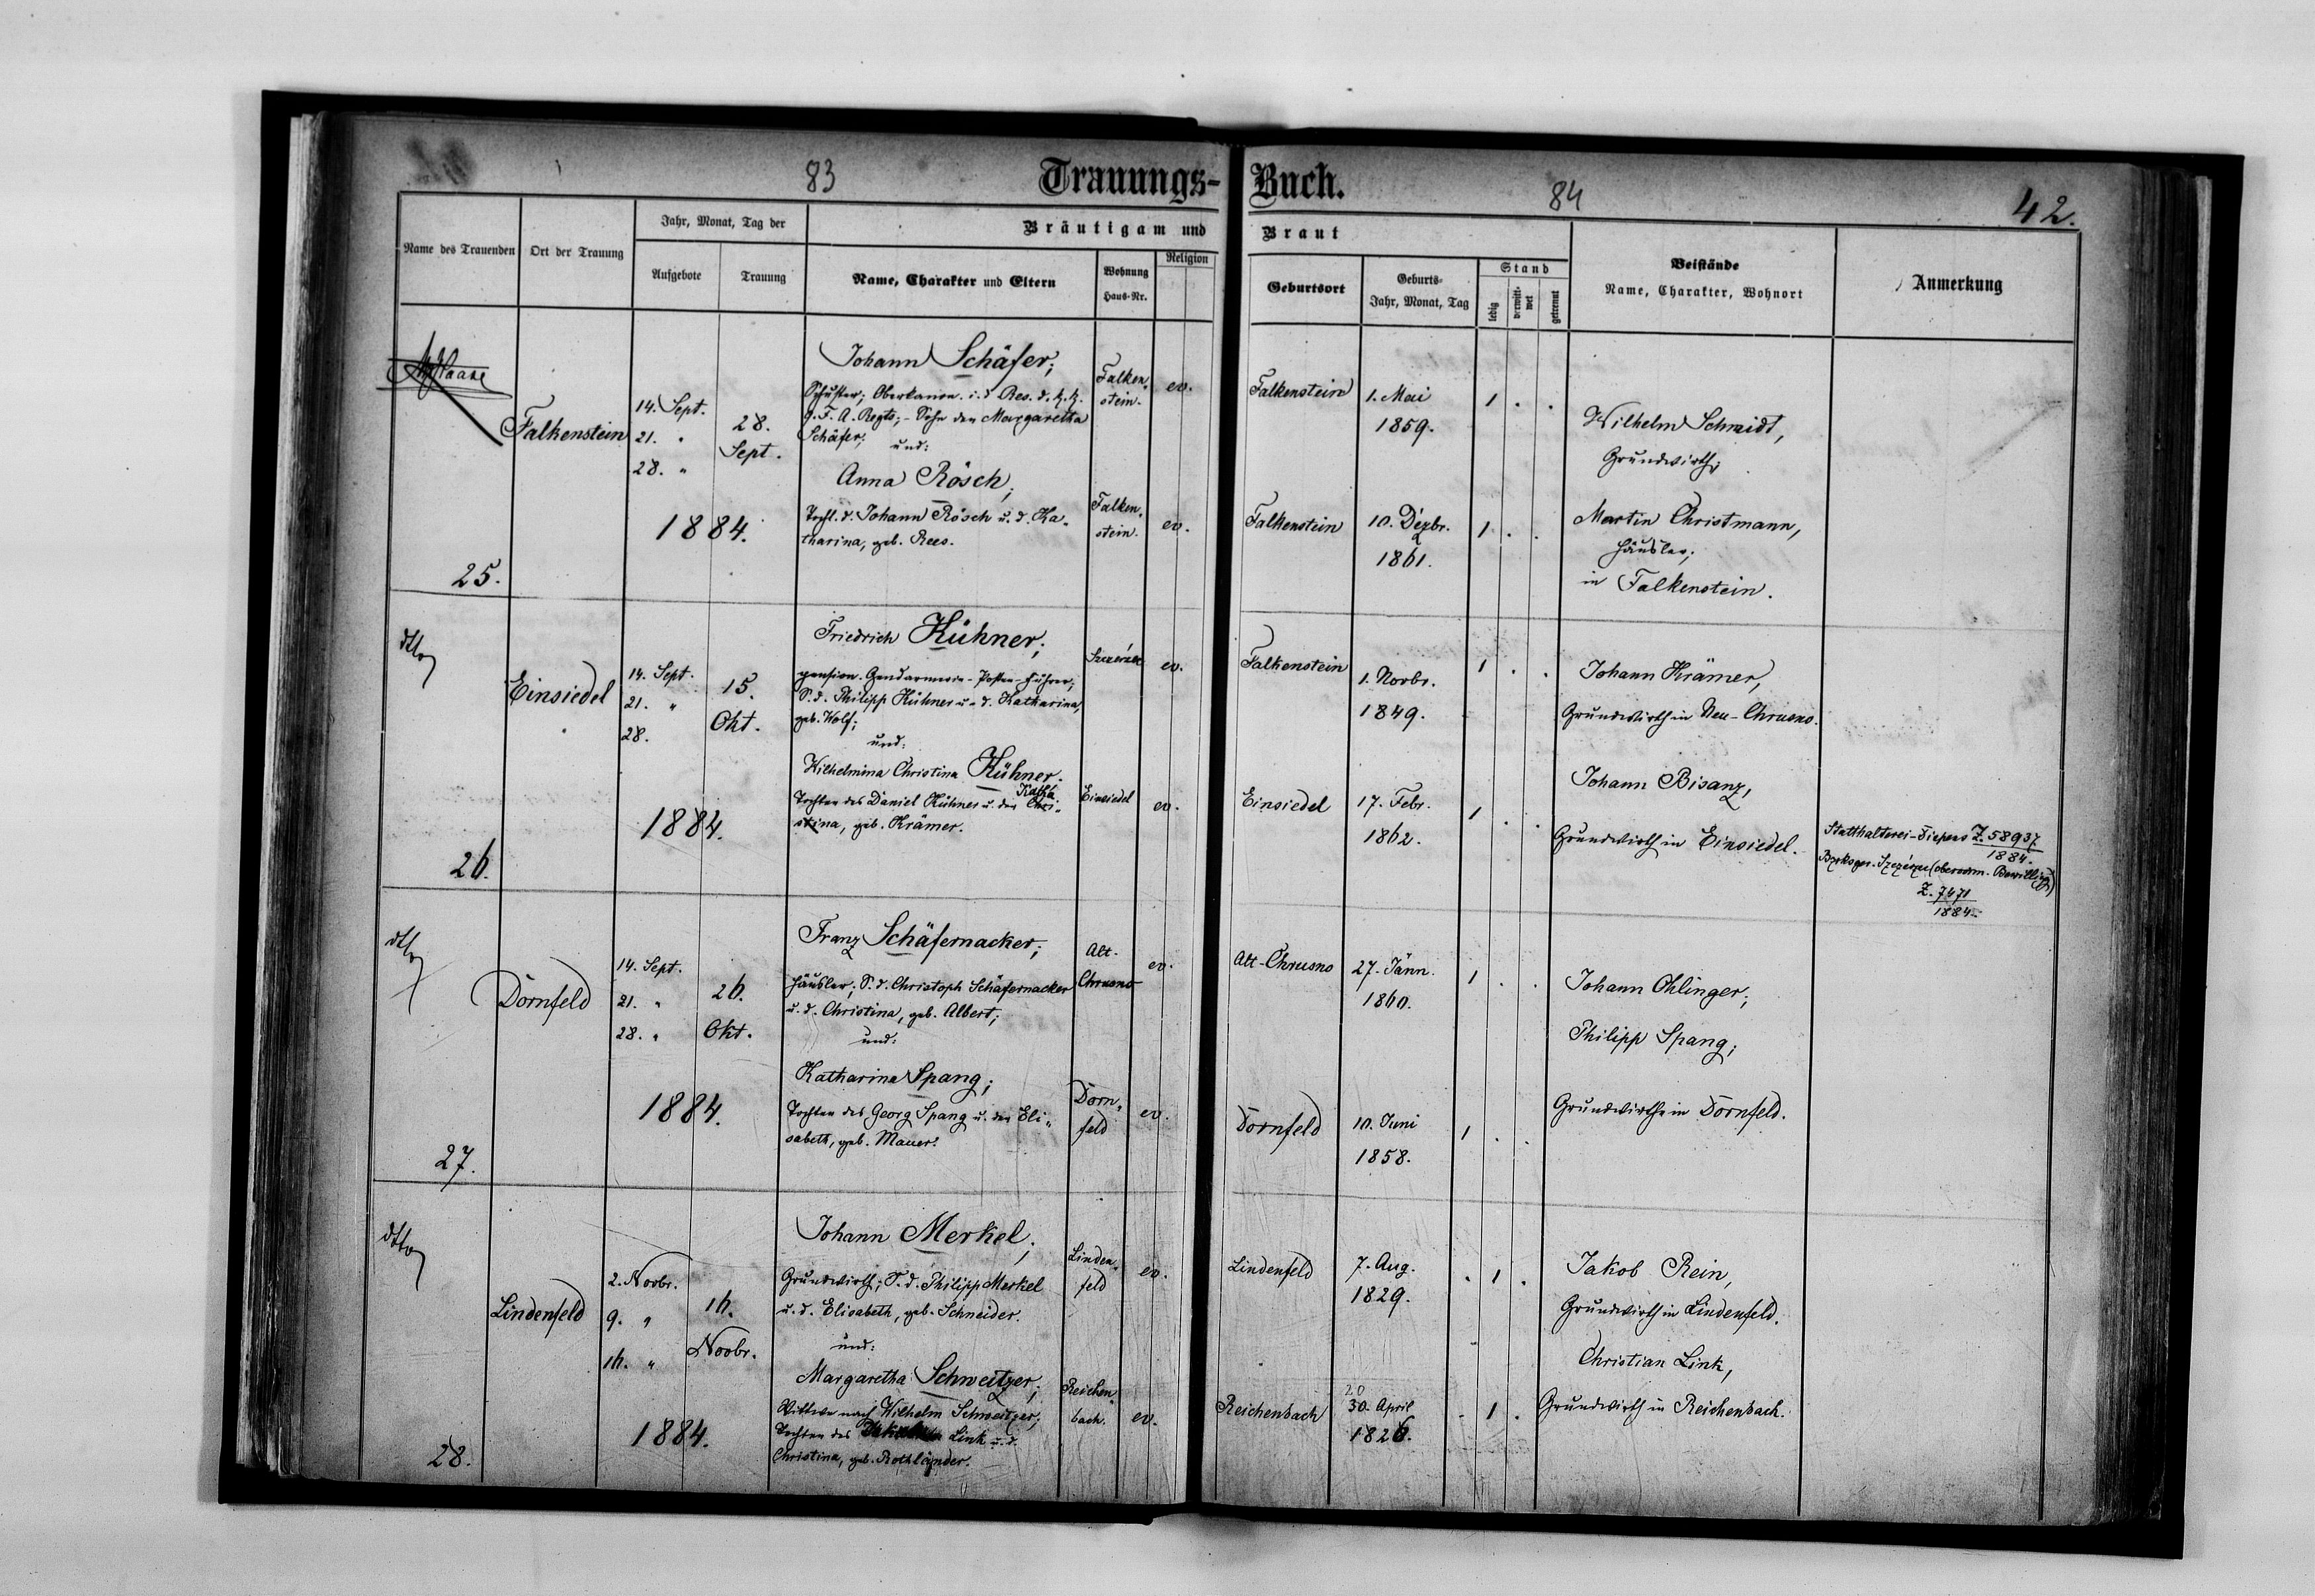 83
Trauungs-Buch.
84
42.
Name des Trauenden
Ort der Trauung
Jahr, Monat, Tag der
Aufgebote
Trauung
Bräutigam und Braut
Name, Charakter und Eltern
Wohnung
Haus-Nr.
Religion
Geburtsort
Geburts-
Jahr, Monat, Tag
Stand
ledig
verwitt-
wet
getrennt
Beistände
Name, Charakter, Wohnort
Anmerkung
25.
Falkenstein
14. Sept.
21. "
28. "
28.
Sept.
1884.
Johann Schäfer;
Schuster; Oberkanon. i. d. Res. d. k. k.
9. F. A. Regts; - Sohn der Margaretha
Schäfer;
und:
Anna Rösch,
Tocht. d. Johann Rösch u. d. Ka-
tharina, geb. Rees.
Falken-
stein.
ev.
Falken-
stein.
ev.
Falkenstein
1. Mai
1859.
1 . .
Falkenstein
10. Dezbr.
1861.
1 . .
Wilhelm Schmidt,
Grundwirth;
Martin Christmann,
Häusler;
in Falkenstein.
dtto
26.
Einsiedel
14. Sept.
21. "
28.
15.
Okt.
1884.
Friedrich Kühner;
pension. Gendarmerie-Posten-Führer;
S. d. Philipp Kühner u. d. Katharina,
geb. Wolf;
und:
Wilhelmina Christina Kühner.
Tochter des Daniel Kühner u. der Chri-
stina, geb. Krämer.
ev.
Einsiedel
ev.
Falkenstein
1. Novbr.
1849.
1 . .
Einsiedel
17. Febr.
1862.
1 . .
Johann Krämer,
Grundwirth in Neu-Chrusno.
Johann Bisanz,
Grundwirth in Einsiedel.
Statthalterei-Dispens Z. 58937
1884.
Z. 7471
1884.
dtto
27.
Dornfeld
14. Sept.
21. "
28. "
26.
Okt.
1884.
Franz Schäfernacker;
Häusler; S. d. Christoph Schäfernacker
u. d. Christina, geb. Albert;
und:
Katharina Spang;
Tochter des Georg Spang u. der Eli-
sabeth, geb. Mauer.
Alt-
Chrusno
ev.
Dorn-
feld
ev.
Alt-Chrusno
27. Jänn.
1860.
1 . .
Dornfeld
10. Juni
1858.
1 . .
Johann Ohlinger;
Philipp Spang;
Grundwirthe in Dornfeld.
dtto
28.
Lindenfeld
2. Novbr.
9. "
16. "
16.
Novbr.
1884.
Johann Merkel;
Grundwirth; S. d. Philipp Merkel
u. d. Elisabeth, geb. Schneider.
und:
Margaretha Schweitzer;
Wittwe nach Wilhelm Schweitzer;
Tochter des Link u. d.
Christina, geb. Rothländer.
Linden-
feld
ev.
Reichen-
bach.
ev.
Lindenfeld
7. Aug.
1829.
. 1 .
Reichenbach
20
30. April
1826.
. 1 .
Jakob Rein,
Grundwirth in Lindenfeld.
Christian Link,
Grundwirth in Reichenbach.